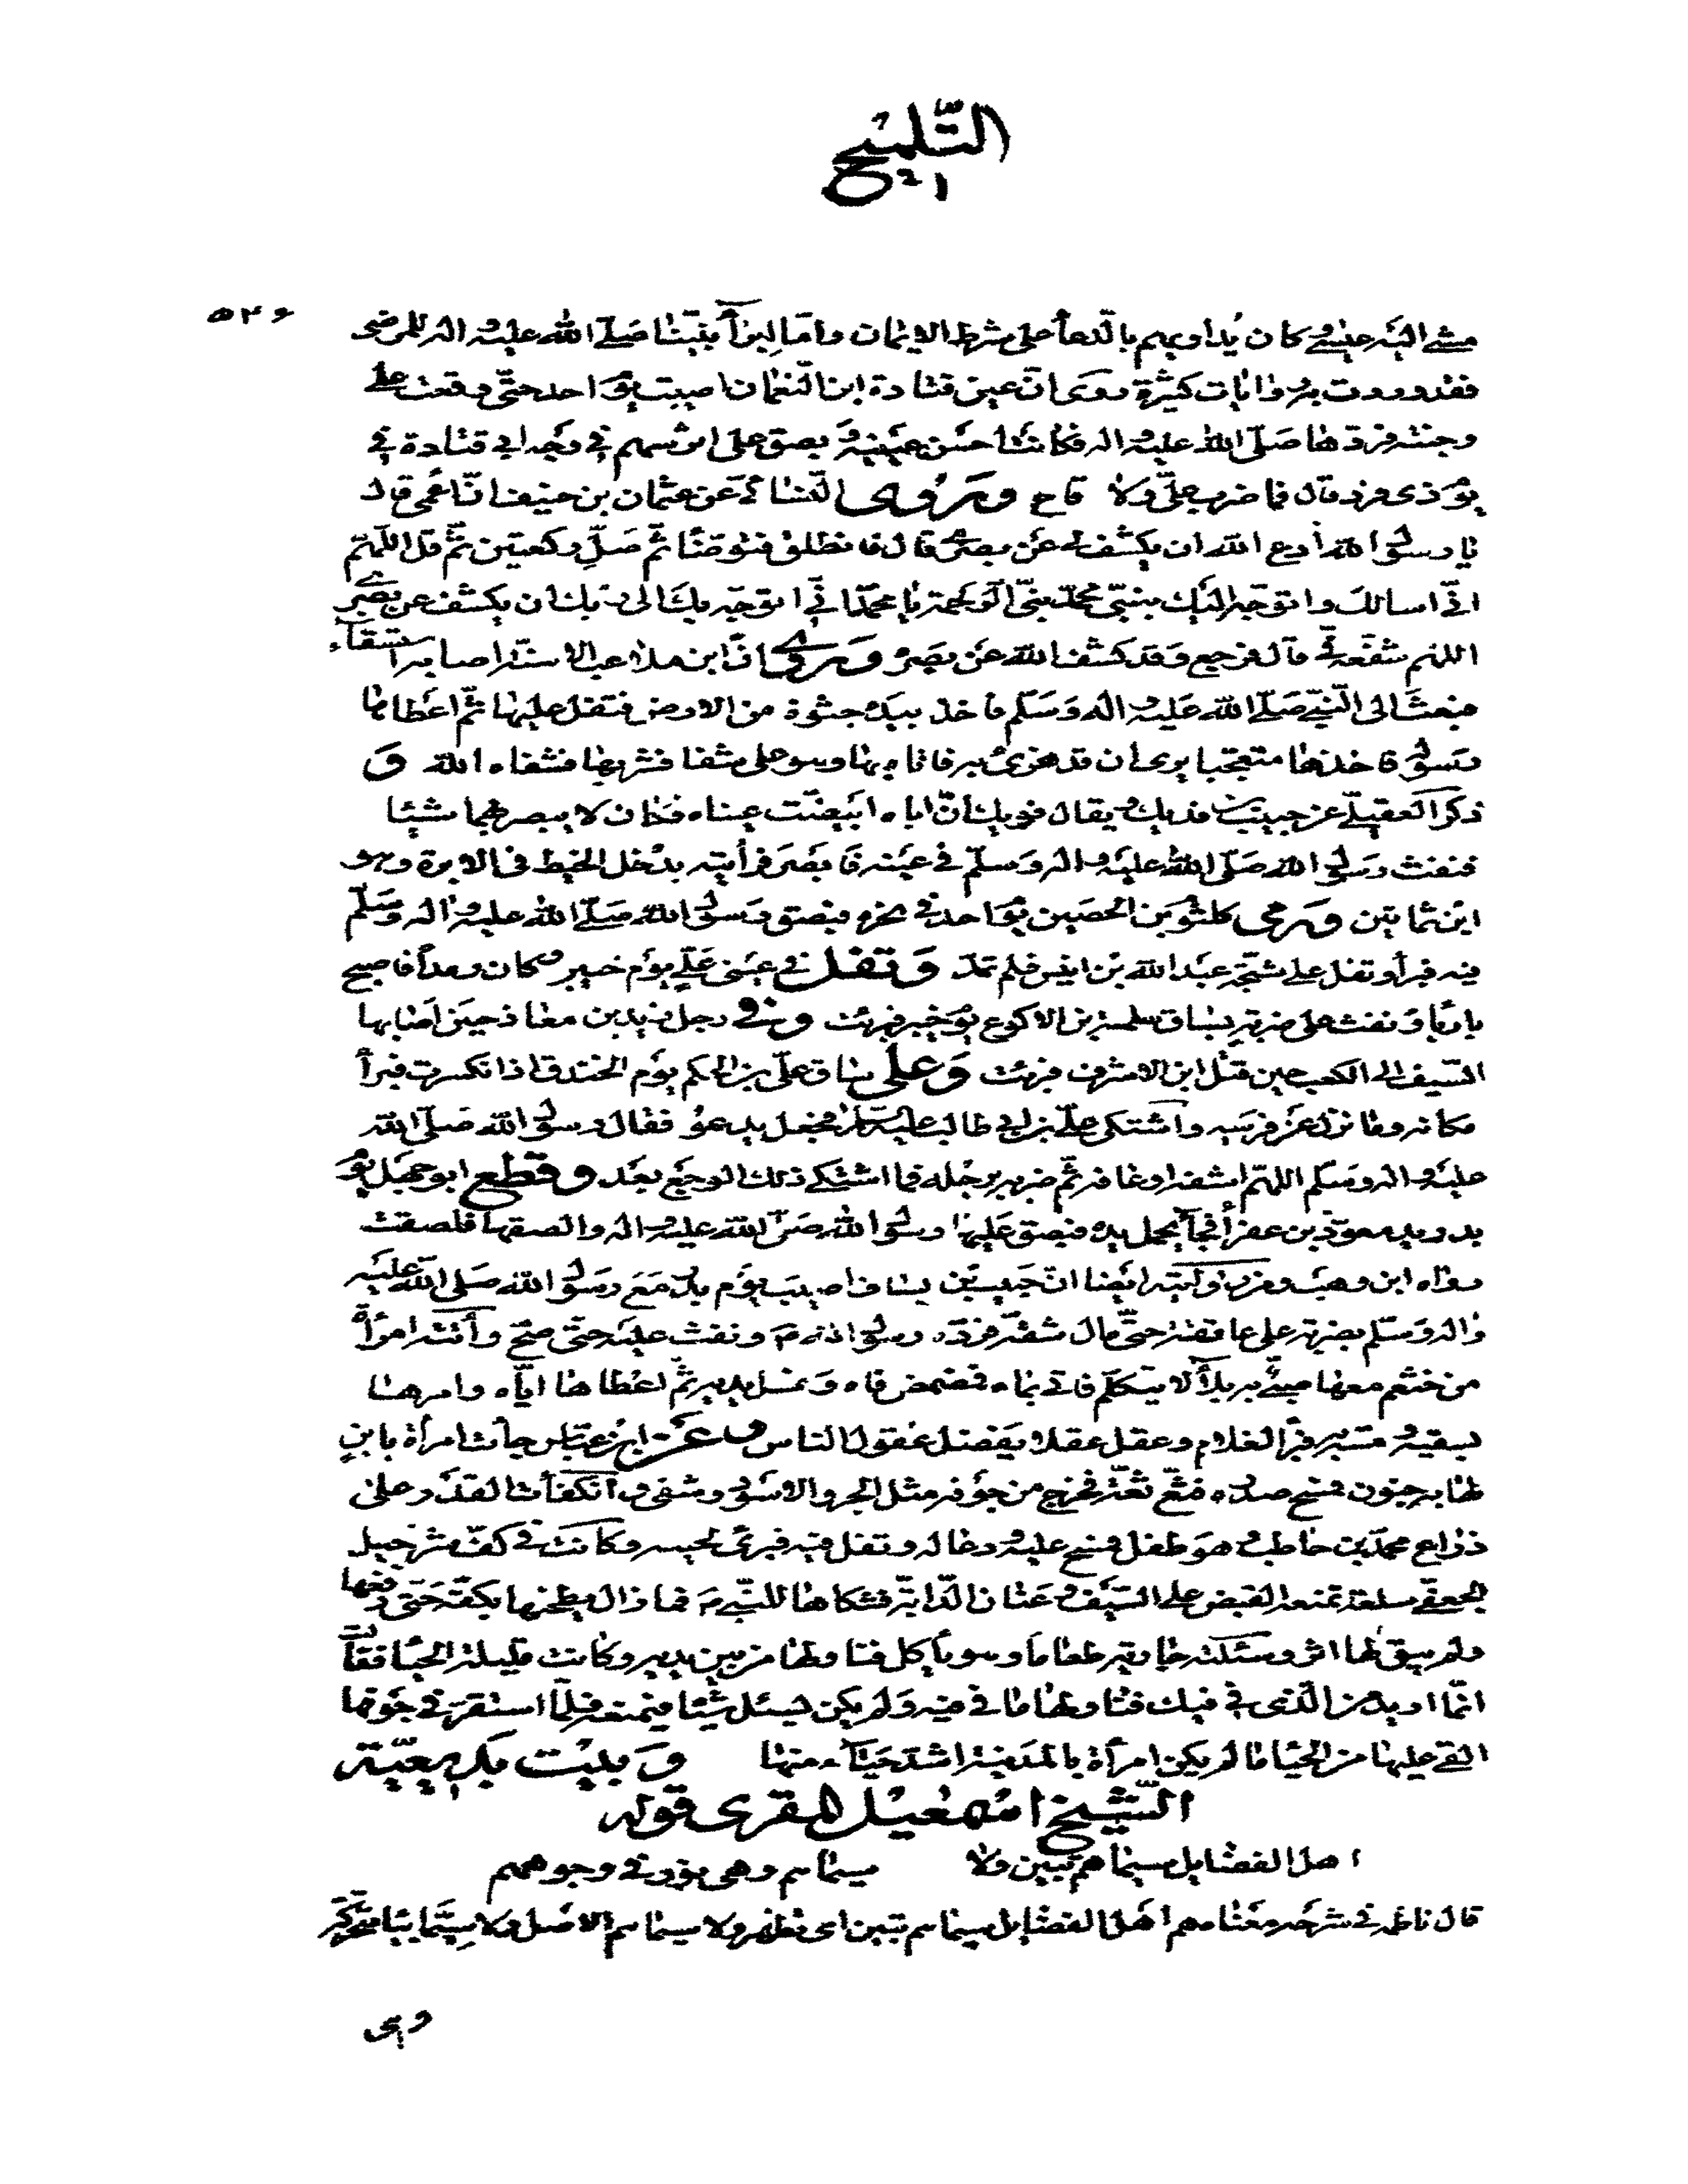 التّلميح
٥٢٦
مشى اليه عيسى كان يُداويهم بالدّعاء على شرط الايمان وامّا ابراء نبيّنا صَلّى اللّٰه عليه واله للمرضى
فقد وردت به روايات كثيرة روى انّ عين قتادة ابن النّعمان اصيبت يوم احد حتّى وقعت على
وجنته فردّها صَلّى اللّٰه عليه واله فكانت احسن عينيه وَبصق على اثر سهم فى وجه ابى قتادة فى
يوم ذى قرد قال فما ضرب علىّ ولا قاح وَرُوى النّسائى عن عثمان بن حنيف انّ اعمى قال
يا رسول اللّٰه ادع اللّٰه ان يكشف لى عن بصرى قال فانطلق فتوضّأ ثم صَلّ ركعتين ثمّ قل اللّهمّ
انّى اسالك واتوجّه اليك بنبيّى محمّد نبىّ الرّحمة يا محمّد انّى اتوجّه بك الى ربّك ان يكشف عن بصرى
اللهم شفّعه فىّ قال فرجع وَقد كشف اللّٰه عن بصره وَروى انّ ابن ملاعب الاسنّة اصابه استسقاء
فبعث الى النّبىّ صَلّى اللّٰه عَليه واله وَسَلّم فاخذ بيده جثوة من الارض فتفل عليها ثمّ اعطاها
رسوله فاخذها متعجّبا يرى ان قد هزئ به فاتاه بها وهو على شفا فشربها فشفاه اللّٰه وَ
ذكر العقيلى عن حبيب بن فديك ويقال فويك انّ اباه ابيضّت عيناه فكان لا يبصر بهما شيئا
فنفث رسول اللّٰه صَلّى اللّٰه عليه واله وسلّم فى عينه فابصر فرأيته يدخل الخيط فى الابرة وهو
ابن ثمانين ورمى كلثوم بن الحصين يوم احد فى نحره فبصق رسول اللّٰه صَلّى اللّٰه عليه واله وسَلّم
فيه فبرأ وتفل على شجّة عبد اللّٰه بن انيس فلم تمدّ وَتفل فى عينى علىّ يوم خيبر وكان رمدا فاصبح
بارئا وَنفث على ضربة بساق سلمة بن الاكوع يوم خيبر فبرئت وفى رجل زيد بن معاذ حين اصابها
السّيف الى الكعب حين قتل ابن الاشرف فبرئت وَعلى ساق علىّ بن الحكم يوم الخندق اذ انكسرت فبرأ
مكانه وما نزل عن فرسه واشتكى علىّ بن ابى طالب عليه السّلام فجعل يدعو فقال رسول اللّٰه صَلّى اللّٰه
عليه واله وسلم اللهمّ اشفه او عافه ثمّ ضربه برجله فما اشتكى ذلك الوجع بعد وقطع ابو جهل يوم
بدر يد معوّذ بن عفراء فجاء يحمل يده فبصق عليها رسول اللّٰه صَلّى اللّٰه عليه واله والصقها فلصقت
رواه ابن وهب ومن روايته ايضا انّ حبيب بن يساف اصيب يوم بدر مَعَ رسول اللّٰه صَلى اللّٰه عليه
واله وَسَلم بضربة على عاتقه حتّى مال شقّه فردّه رسول اللّٰه ص ونفث عليه حتّى صحّ وأتته امرأة
من خثعم معها صبىّ به بلاء لا يتكلّم فاتى بماء فمضمض فاه وَغسل يديه ثمّ اعطاها ايّاه وامرها
بسقيه ومسّه به فبرأ الغلام وعقل عقلا يفضل عقول الناس وعن ابن عبّاس جائت امرأة بابن
لها به جنون فمسح صدره فثعّ ثعّة فخرج من جوفه مثل الجرو الاسود وشفى وانكفأت القدر على
ذراع محمّد بن حاطب وهو طفل فمسح عليه ودعا له وتفل فيه فبرئ لحينه وكانت فى كفّ شرحبيل
الجعفى سلعة تمنعه القبض على السّيف وعنان الدّابّة فشكاها للنّبى ص فما زال يطحنها بكفّه حَتّى رفعها
ولم يبق لها اثر وسئلته جارية طعاما وهو يأكل فناولها من بين يديه وكانت قليلة الحياء فقالت
انّما اريد من الّذى فى فيك فناولها ما فى فيه وَلم يكن ليسئل شيئا فيمنعه فلمّا استقرّ فى جوفها
القى عليها من الحياء ما لم يكن امرأة بالمدينة اشدّ حياء منها وَبيت بديعيّة
الشّيخ اسمعيل المقرى قوله
اهل الفضايل سيماهم تبين ولا سيماهم وهى نور فى وجوههم
قال ناظمه فى شرحه معناه هم اهل الفضايل سيماهم تبين اى تظهر ولا سيماهم الاصل ولا سِيّما بياء متحرّكة
وهى